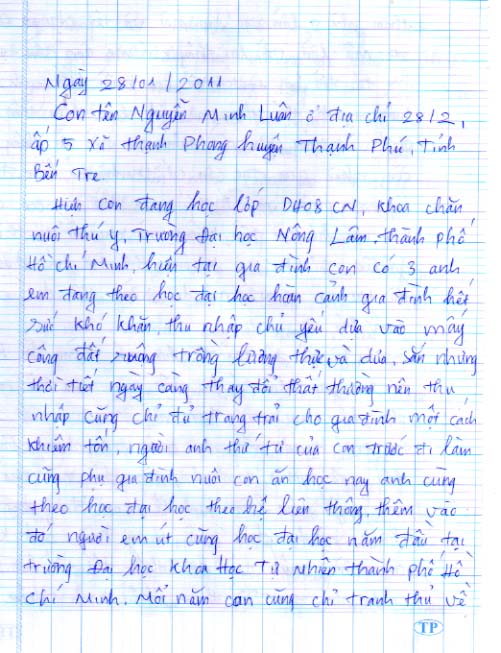 Ngày 28/01/2011
Con tên Nguyễn Minh Luân ở địa chỉ 28/2,
ấp 5 Xã thạnh Phong huyện Thạnh Phú, tỉnh
Bến Tre
Hiện con đang học lớp DH08CN, khoa chăn
nuôi thú y, Trường Đại học Nông Lâm, thành phố
Hồ chí Minh, hiện tại gia đình con có 3 anh
em đang theo học đại học hoàn cảnh gia đình hết
sức khó khăn, thu nhập chủ yếu dựa vào mấy
công đất ruộng trồng lương thực và dưa, sắn nhưng
thời tiết ngày càng thay đổi thất thường nên thu
nhập cũng chỉ đủ trang trải cho gia đình một cách
khiêm tốn, người anh thứ tư của con trước đi làm
cùng phụ gia đình nuôi con ăn học nay anh cũng
theo học đại học theo hệ liên thông, thêm vào
đó người em út cũng học đại học năm đầu tại
trường Đại học Khoa Học Tự Nhiên thành phố Hồ
chí Minh. Mỗi năm con cũng chỉ tranh thủ về
TP